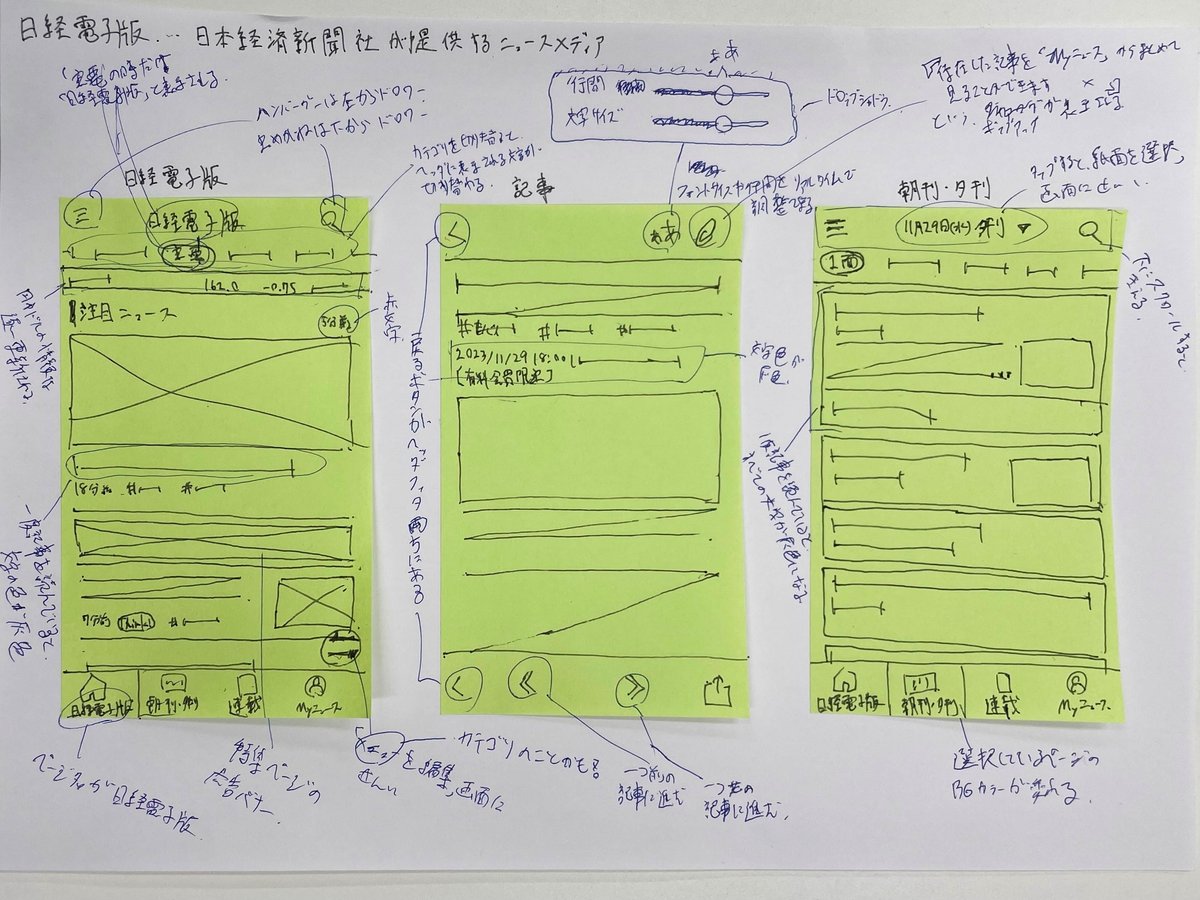 日経電子版… 日本経済新聞社が提供するニュースメディア
「主要」の時だけ
「日経電子版」と表示される
ハンバーガーは左からドロワー
虫めがねは下からドロワー
カテゴリを切り替えると
ヘッダに表示される文字が
切り替わる
ああ
行間
文字サイズ
ドロップシャドウ
フォントサイズや行間をリアルタイムで
調整できる
保存した記事を「Myニュース」からまとめて
見ることができます
という
タップすると、紙面を選択
画面に
日経電子版
記事
朝刊・夕刊
日経電子版
主要
162.0 -0.75
注目ニュース
5分前
赤文字
18分前 # #
7分前 Think! #
日経電子版
朝刊・夕刊
連載
Myニュース
ああ
# # #
2023/11/29 18:00
[有料会員限定]
文字色が
灰色
戻るボタンがヘッダ・フッタ両方にある
11月29日(水) 夕刊 ▼
1面
下にスクロールすると
消える
一度記事を読んでいると
すべての文字が灰色になる
日経電子版
朝刊・夕刊
連載
Myニュース
円やドルの情報が
逐一更新される
一度記事を読んでいると
文字の色が灰色
ページ名が日経電子版
特集ページの
広告バナー
メニューを編集画面に
せんい
カテゴリのことかも?
一つ前の
記事に進む
一つ先の
記事に進む
選択しているページの
BGカラーが変わる